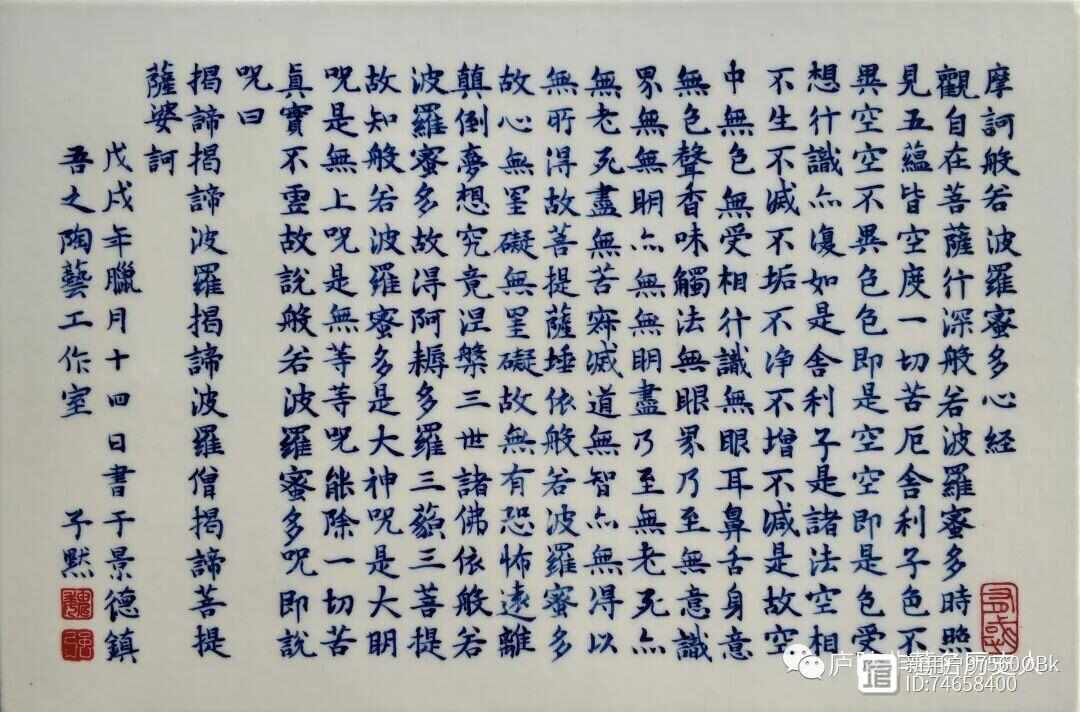 摩訶般若波羅蜜多心经
觀自在菩薩行深般若波羅蜜多時照
見五蘊皆空度一切苦厄舍利子色不
異空空不異色色即是空空即是色受
想行識亦復如是舍利子是諸法空相
不生不滅不垢不净不增不減是故空
中無色無受相行識無眼耳鼻舌身意
無色聲香味觸法無眼界乃至無意識
界無無明亦無無明盡乃至無老死亦
無老死盡無苦寂滅道無智亦無得以
無所得故菩提薩埵依般若波羅蜜多
故心無罣礙無罣礙故無有恐怖遠離
顛倒夢想究竟涅槃三世諸佛依般若
波羅蜜多故得阿耨多羅三藐三菩提
故知般若波羅蜜多是大神咒是大明
咒是無上咒是無等等咒能除一切苦
真實不虛故說般若波羅蜜多咒即說
咒曰
揭諦揭諦波羅揭諦波羅僧揭諦菩提
薩婆訶
戊戌年臘月十四日書于景德鎮
吾之陶藝工作室 子默
新用户975600Bk
ID:74658400